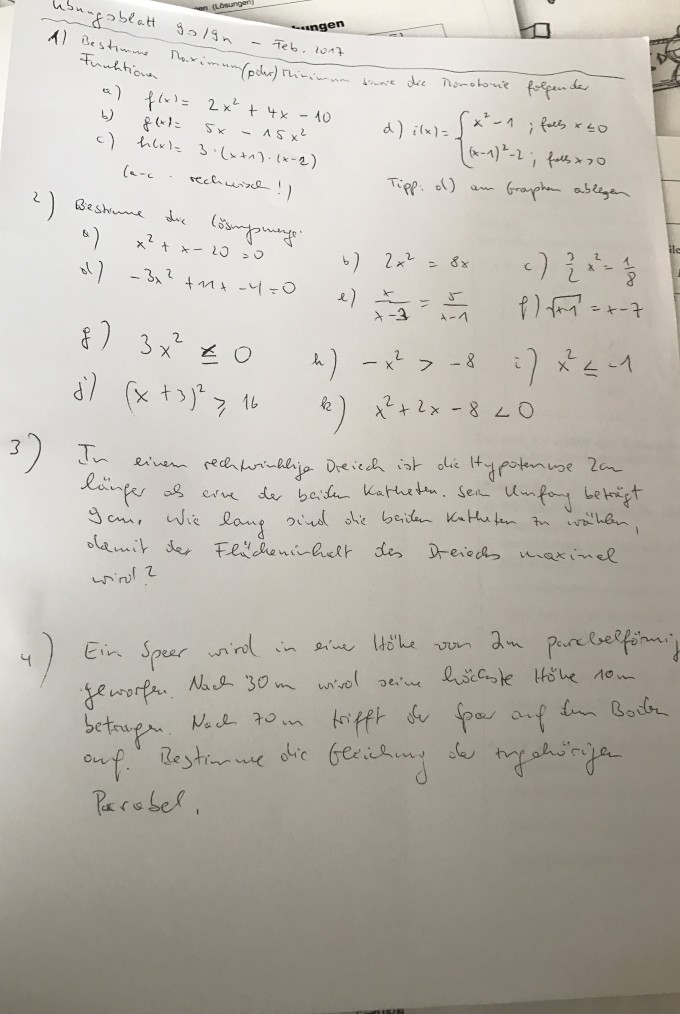 en (Lösungen)
ungen
Übungsblatt 9s/9n – Feb. 2017
1) Bestimme Maximum (oder) Minimum sowie die Monotonie folgender
Funktionen
a) f(x) = 2x² + 4x - 10
b) g(x) = 5x - 15x²
c) h(x) = 3·(x+1)·(x-2)
(a-c rechnerisch!)
d) i(x) = { x² - 1 ; falls x ≤ 0
(x-1)² - 2 ; falls x > 0
Tipp. d) am Graphen ablesen
2) Bestimme die Lösungsmenge.
a) x² + x - 20 = 0
b) 2x² = 8x
c) 3/2 x² = 1/8
d) -3x² + 11x - 4 = 0
e) x/(x-3) = 5/(x-1)
f) √(x-1) = x - 7
g) 3x² ≤ 0
h) -x² > -8
i) x² ≤ -1
j) (x + 3)² ≥ 16
k) x² + 2x - 8 < 0
3) In einem rechtwinklige Dreiech ist die Hypotenuse 2cm
länger als eine der beiden Katheten. Sein Umfang beträgt
9cm. Wie lang sind die beiden Katheten zu wählen,
damit der Flächeninhalt des Dreiecks maximal
wird?
4) Ein Speer wird in einer Höhe von 2m parabelförmig
geworfen. Nach 30m wird seine höchste Höhe 10m
betragen. Nach 70m trifft der Speer auf dem Boden
auf. Bestimme die Gleichung der zugehörigen
Parabel.